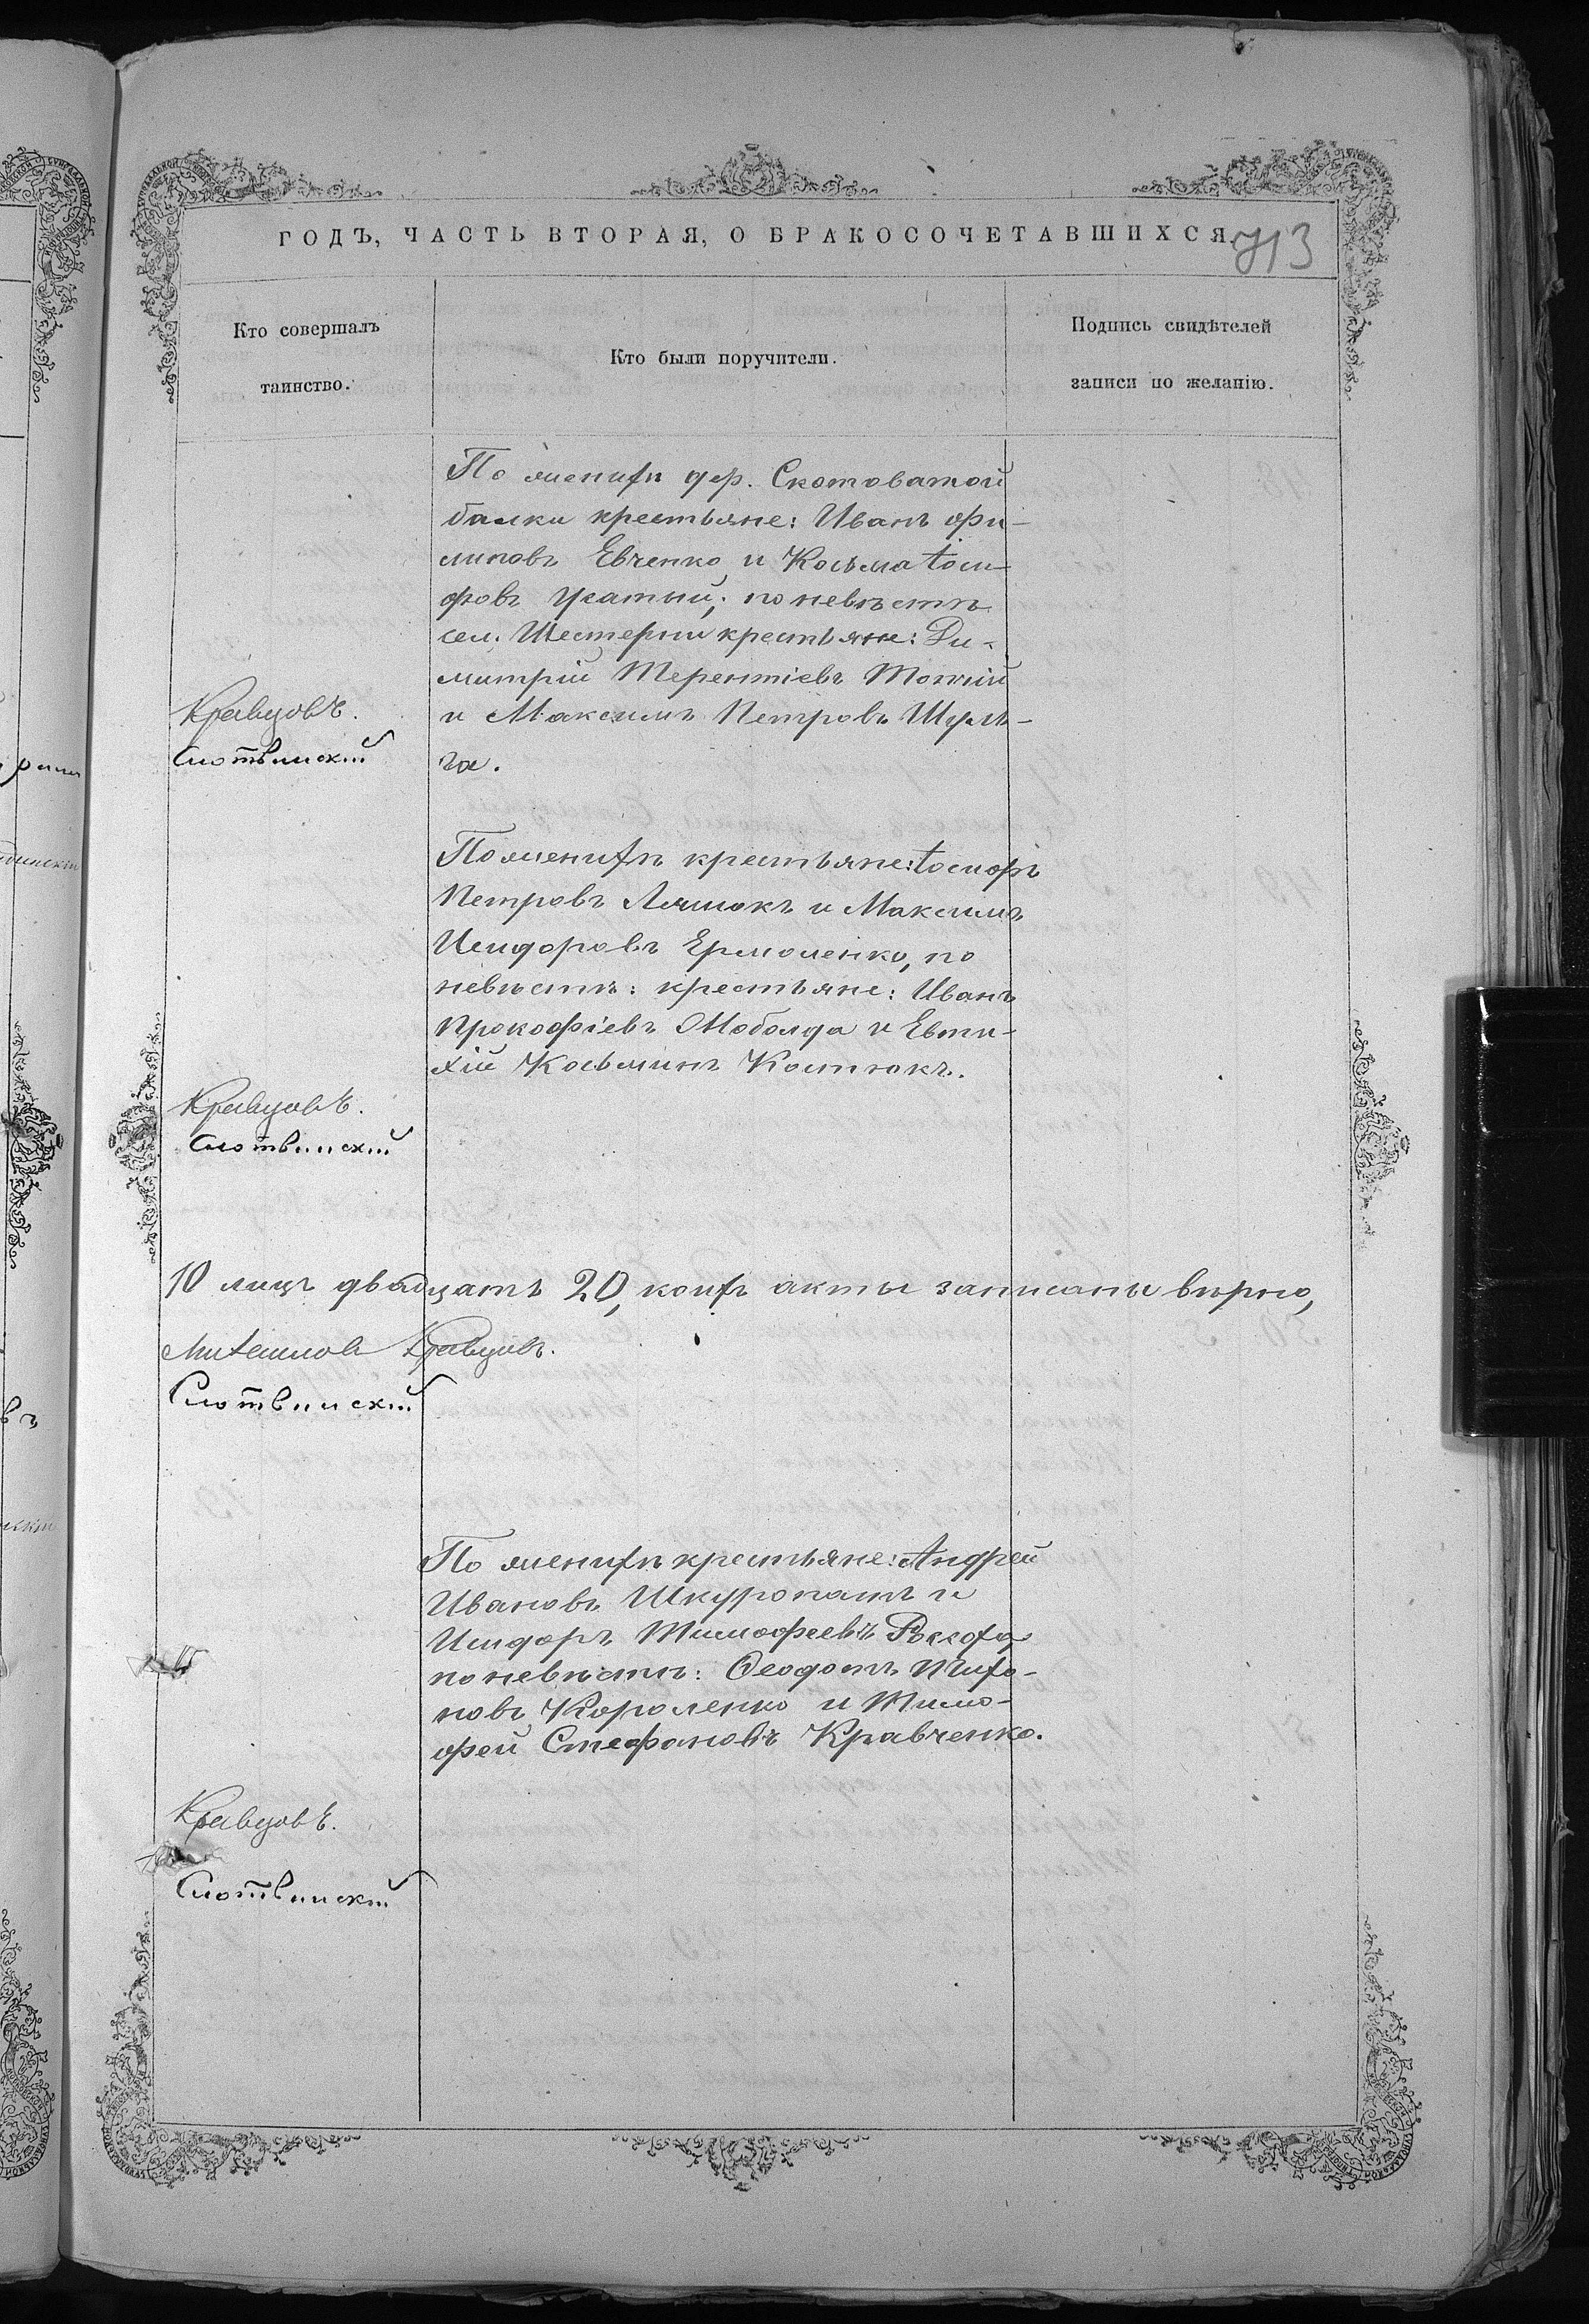 ГОДЪ, ЧАСТЬ ВТОРАЯ, О БРАКОСОЧЕТАВШИХСЯ.
713
Кто совершалъ
таинство.
Кто были поручители.
Подпись свидѣтелей
записи по желанію.
По женихѣ дер. Скотоватой
балки крестьяне: Иванъ Фи-
липовъ Евченко и Косьма Іоси-
фовъ Усатый; по невѣстѣ
сел. Шестерни крестьяне: Ди-
митрій Терентіевъ
и Максимъ Петровъ Шуль-
га.
Кравцовъ.
Слотвинскій
По женихѣ крестьяне: Іосифъ
Петровъ Ляшокъ и Максимъ
Исидоровъ Ермоленко, по
невѣстѣ: крестьяне: Иванъ
Прокофіевъ и Евти-
хій Косьминъ Костюкъ.
Кравцовъ.
Слотвинскій
10 лицъ двадцать 20, коихъ акты записаны вѣрно,
Кравцовъ.
Слотвинскій
По женихѣ крестьяне: Андрей
Ивановъ Шкуропатъ и
Исидоръ Тимофеевъ
по невѣстѣ: Ѳеодотъ Тихо-
новъ Короленко и Тимо-
фей Стефановъ Кравченко.
Кравцовъ.
Слотвинскій